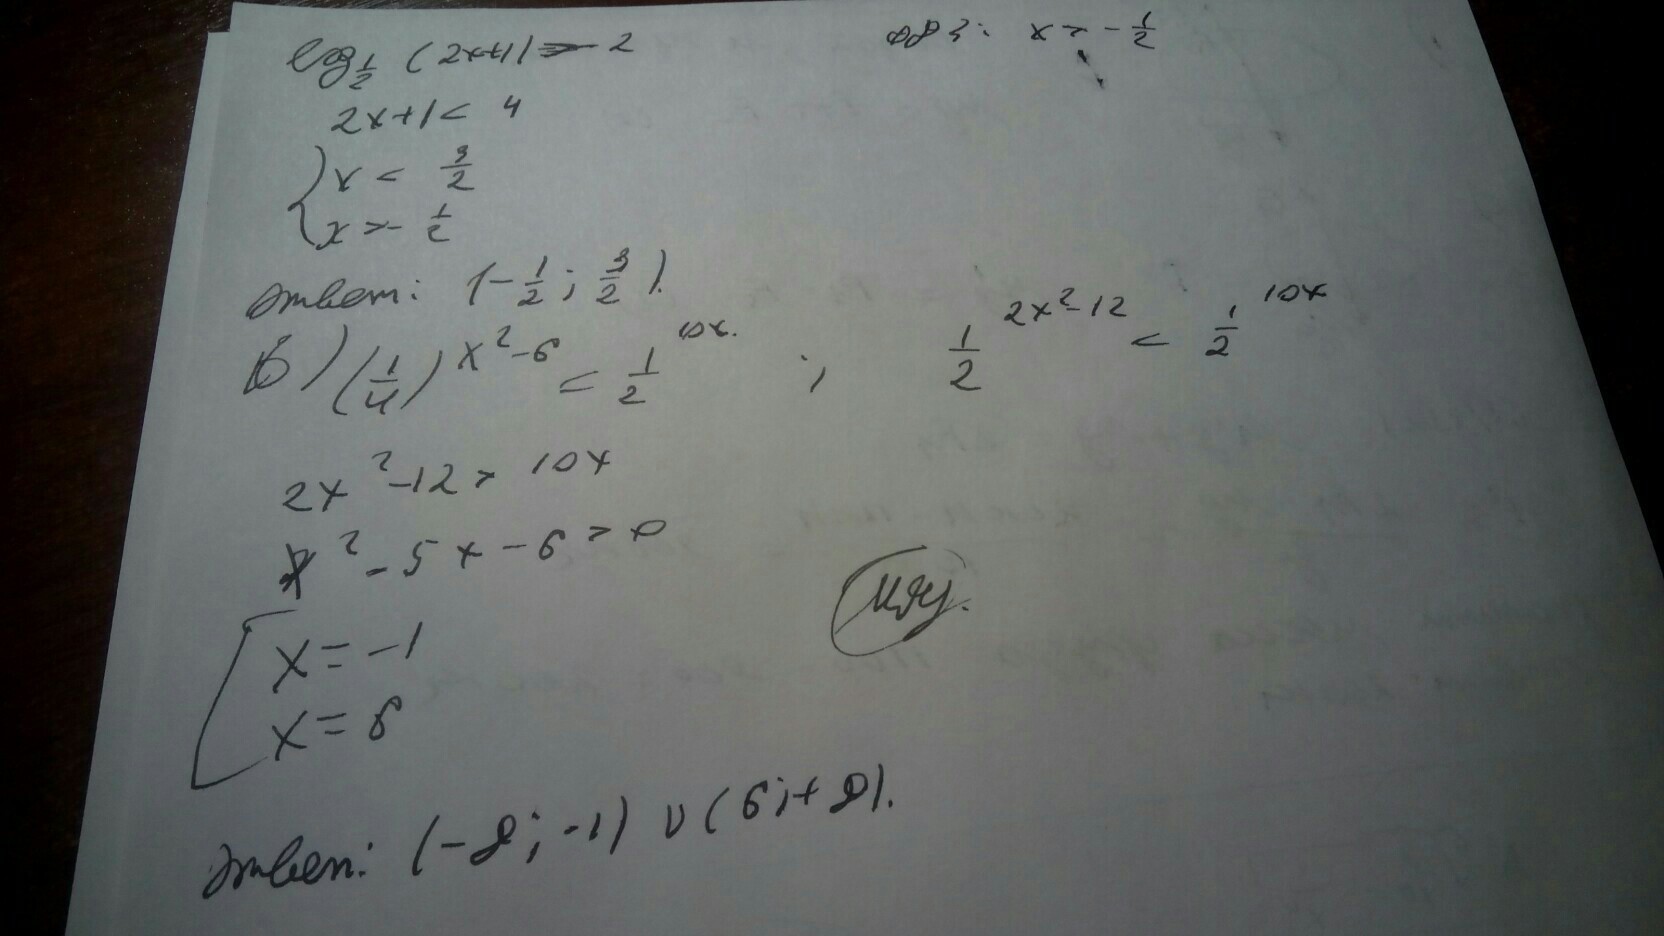 log 1/2 (2x+1) > -2 одз: x > -1/2
2x+1 < 4
{ x < 3/2
x > -1/2
Ответ: (-1/2; 3/2).
б) (1/4)^(x²-6) < 1/2^(10x). ; 1/2^(2x²-12) < 1/2^(10x)
2x²-12 > 10x
x² - 5x - 6 > 0
[ x = -1
x = 6
Ответ: (-∞; -1) ∪ (6; +∞).